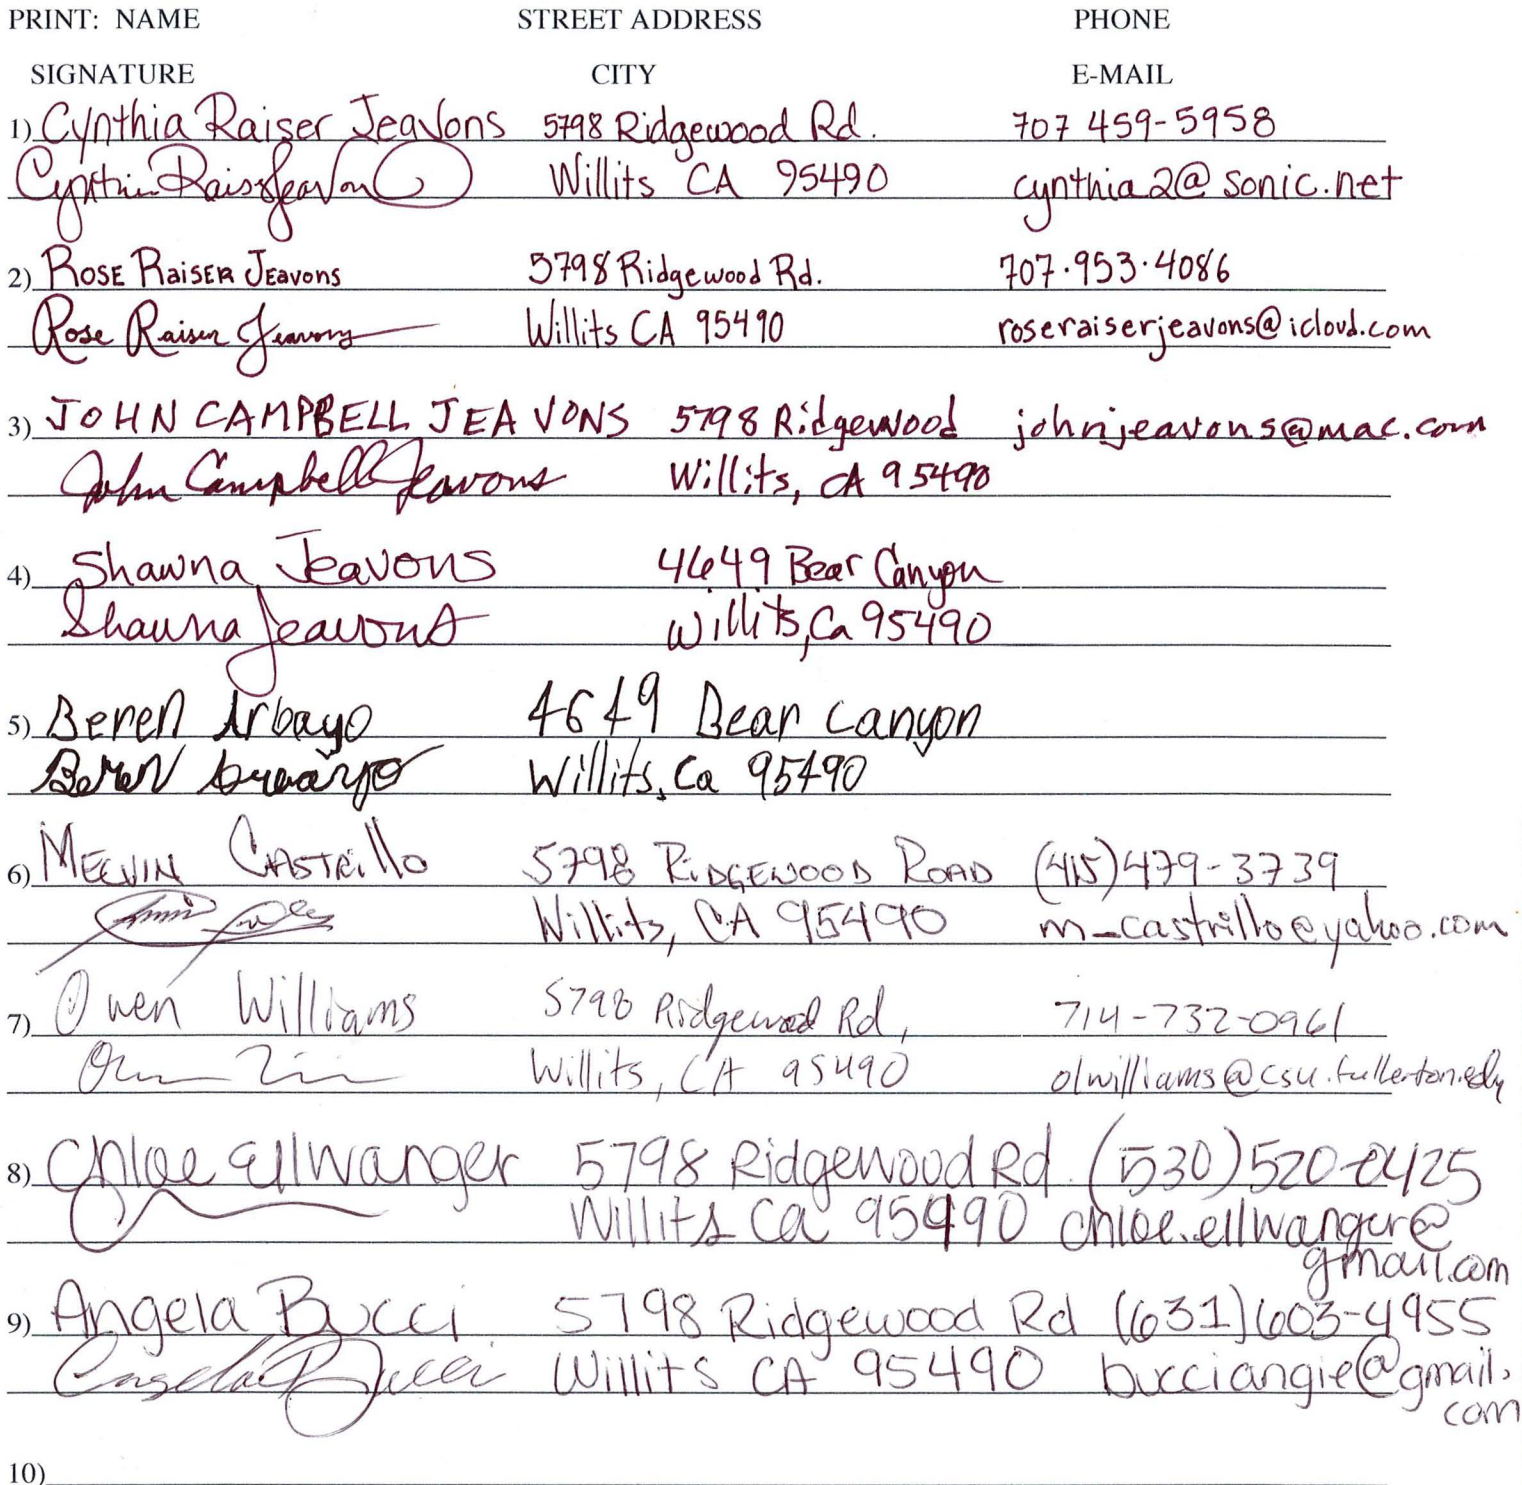 PRINT: NAME STREET ADDRESS PHONE
SIGNATURE CITY E-MAIL
1) Cynthia Raiser Jeavons 5798 Ridgewood Rd. 707 459-5958
Cynthia Raiser Jeavons Willits CA 95490 cynthia2@sonic.net
2) Rose Raiser Jeavons 5798 Ridgewood Rd. 707·953·4086
Rose Raiser Jeavons Willits CA 95490 roseraiserjeavons@icloud.com
3) JOHN CAMPBELL JEAVONS 5798 Ridgewood johnjeavons@mac.com
John Campbell Jeavons Willits, CA 95490
4) Shawna Jeavons 4649 Bear Canyon
Shawna Jeavons Willits, Ca 95490
5) Beren Arbayo 4649 Bear Canyon
Beren Willits, Ca 95490
6) MELVIN CASTRillo 5798 RIDGEWOOD ROAD (415)479-3739
Willits, CA 95490 m_castrillo@yahoo.com
7) Owen Williams 5798 Ridgewood Rd, 714-732-0961
Willits, CA 95490 olwilliams@csu.fullerton.edu
8) Chloe Ellwanger 5798 Ridgewood Rd. (530)520-0425
Willits Ca 95490 chloe.ellwanger@
gmail.com
9) Angela Bucci 5798 Ridgewood Rd (631)603-4955
Angela Bucci Willits CA 95490 bucciangie@gmail.
com
10)